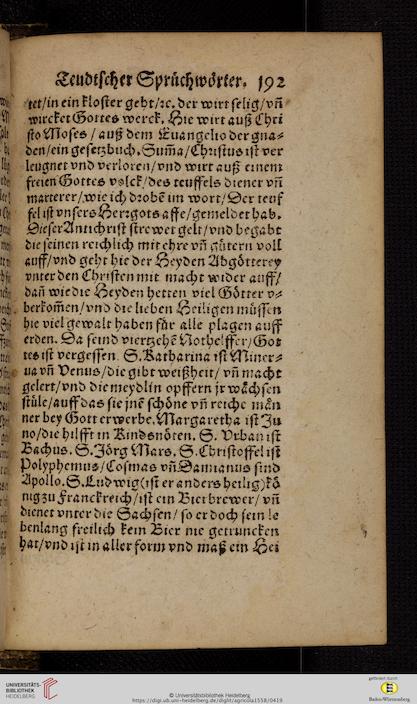 Teudtscher Sprüchwörter. 192
tet/in ein kloster geht/ꝛc. der wirt selig/vñ
wircket Gottes werck. Hie wirt auß Chri
sto Moses / auß dem Euangelio der gna=
den/ein gesetzbuch. Sum̃a/Christus ist ver
leugnet vnd verloren/vnd wirt auß einem
freien Gottes volck/des teuffels diener vñ
marterer/wie ich drobẽ im wort/Der teuf
fel ist vnsers Herrgots affe/gemeldet hab.
Dieser Antichrist strewet gelt/vnd begabt
die seinen reichlich mit ehre vñ gütern voll
auff/vnd geht hie der Heyden Abgötterey
vnter den Christen mit macht wider auff/
dañ wie die Heyden hetten viel Götter v=
berkom̃en/vnd die lieben Heiligen müssen
hie viel gewalt haben für alle plagen auff
erden. Da seind viertzehẽ Nothelffer/Got
tes ist vergessen. S. Katharina ist Miner=
ua vñ Venus/die gibt weißheit/ vñ macht
gelert/vnd die meydlin opffern jr wächsen
stüle/auff das sie jnẽ schöne vñ reiche män
ner bey Gott erwerbe. Margaretha ist Ju
no/die hilfft in Kindsnöten. S. Vrban ist
Bachus. S. Jörg Mars. S. Christoffel ist
Polyphemus/Cosmas vñ Damianus sind
Apollo. S. Ludwig (ist er anders heilig) kö
nig zu Franckreich/ist ein Bierbrewer/ vñ
dienet vnter die Sachsen/ so er doch sein le
benlang freilich kein Bier nie getruncken
hat/vnd ist in aller form vnd maß ein Hei
UNIVERSITÄTS-
BIBLIOTHEK
HEIDELBERG
© Universitätsbibliothek Heidelberg
https://digi.ub.uni-heidelberg.de/diglit/agricola1558/0419
gefördert durch
Baden-Württemberg